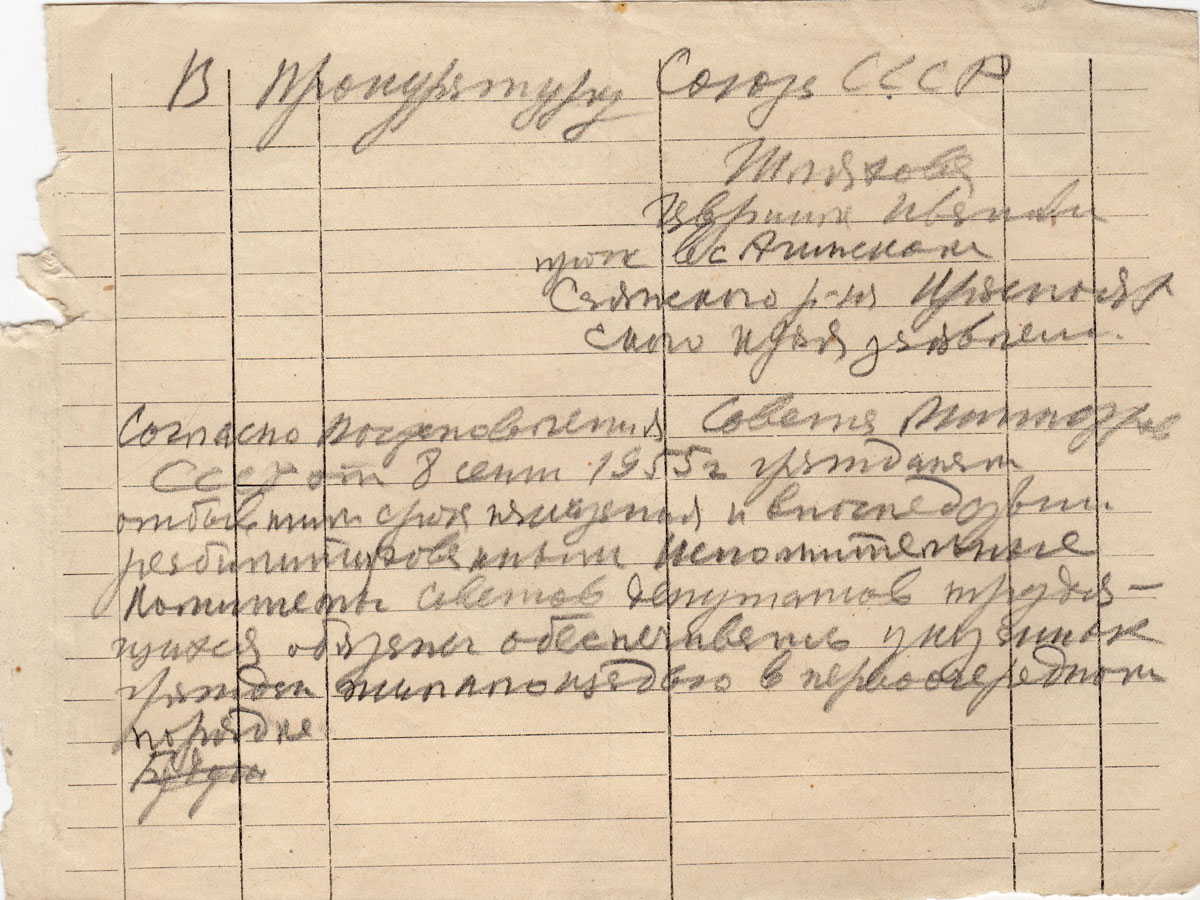 В Прокуратуру Союза ССР
Шляхова
Гавриила Иванови
прож в с Агинском
Саянского р-на Краснояр
ского края заявление.
Согласно Постановления Совета Министров
СССР от 8 сент 1955 г гражданам
отбывшим срок наказания и впоследствии
реабилитированным Исполнительные
Комитеты Советов депутатов трудя-
щихся обязаны обеспечивать указанных
граждан жилплощадью в первоочередном
порядке